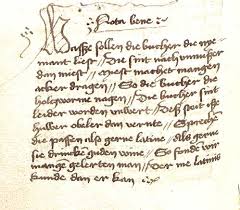 Nota bene
Wasse sollen die bucher die nye
mant liest // Die sint nach unnutzer
dan miest // Miest machet mangen
acker dragen // So die bucher die
holtzworme nagen // Die bucher sint
leider worden unwert // Deß
halber dan vernte // Spreche
die passen als gerne latine // als gerne
sie drincke guden wine // So fonde wir
mangen gelerten man // Der me latins
kunde dan er kan